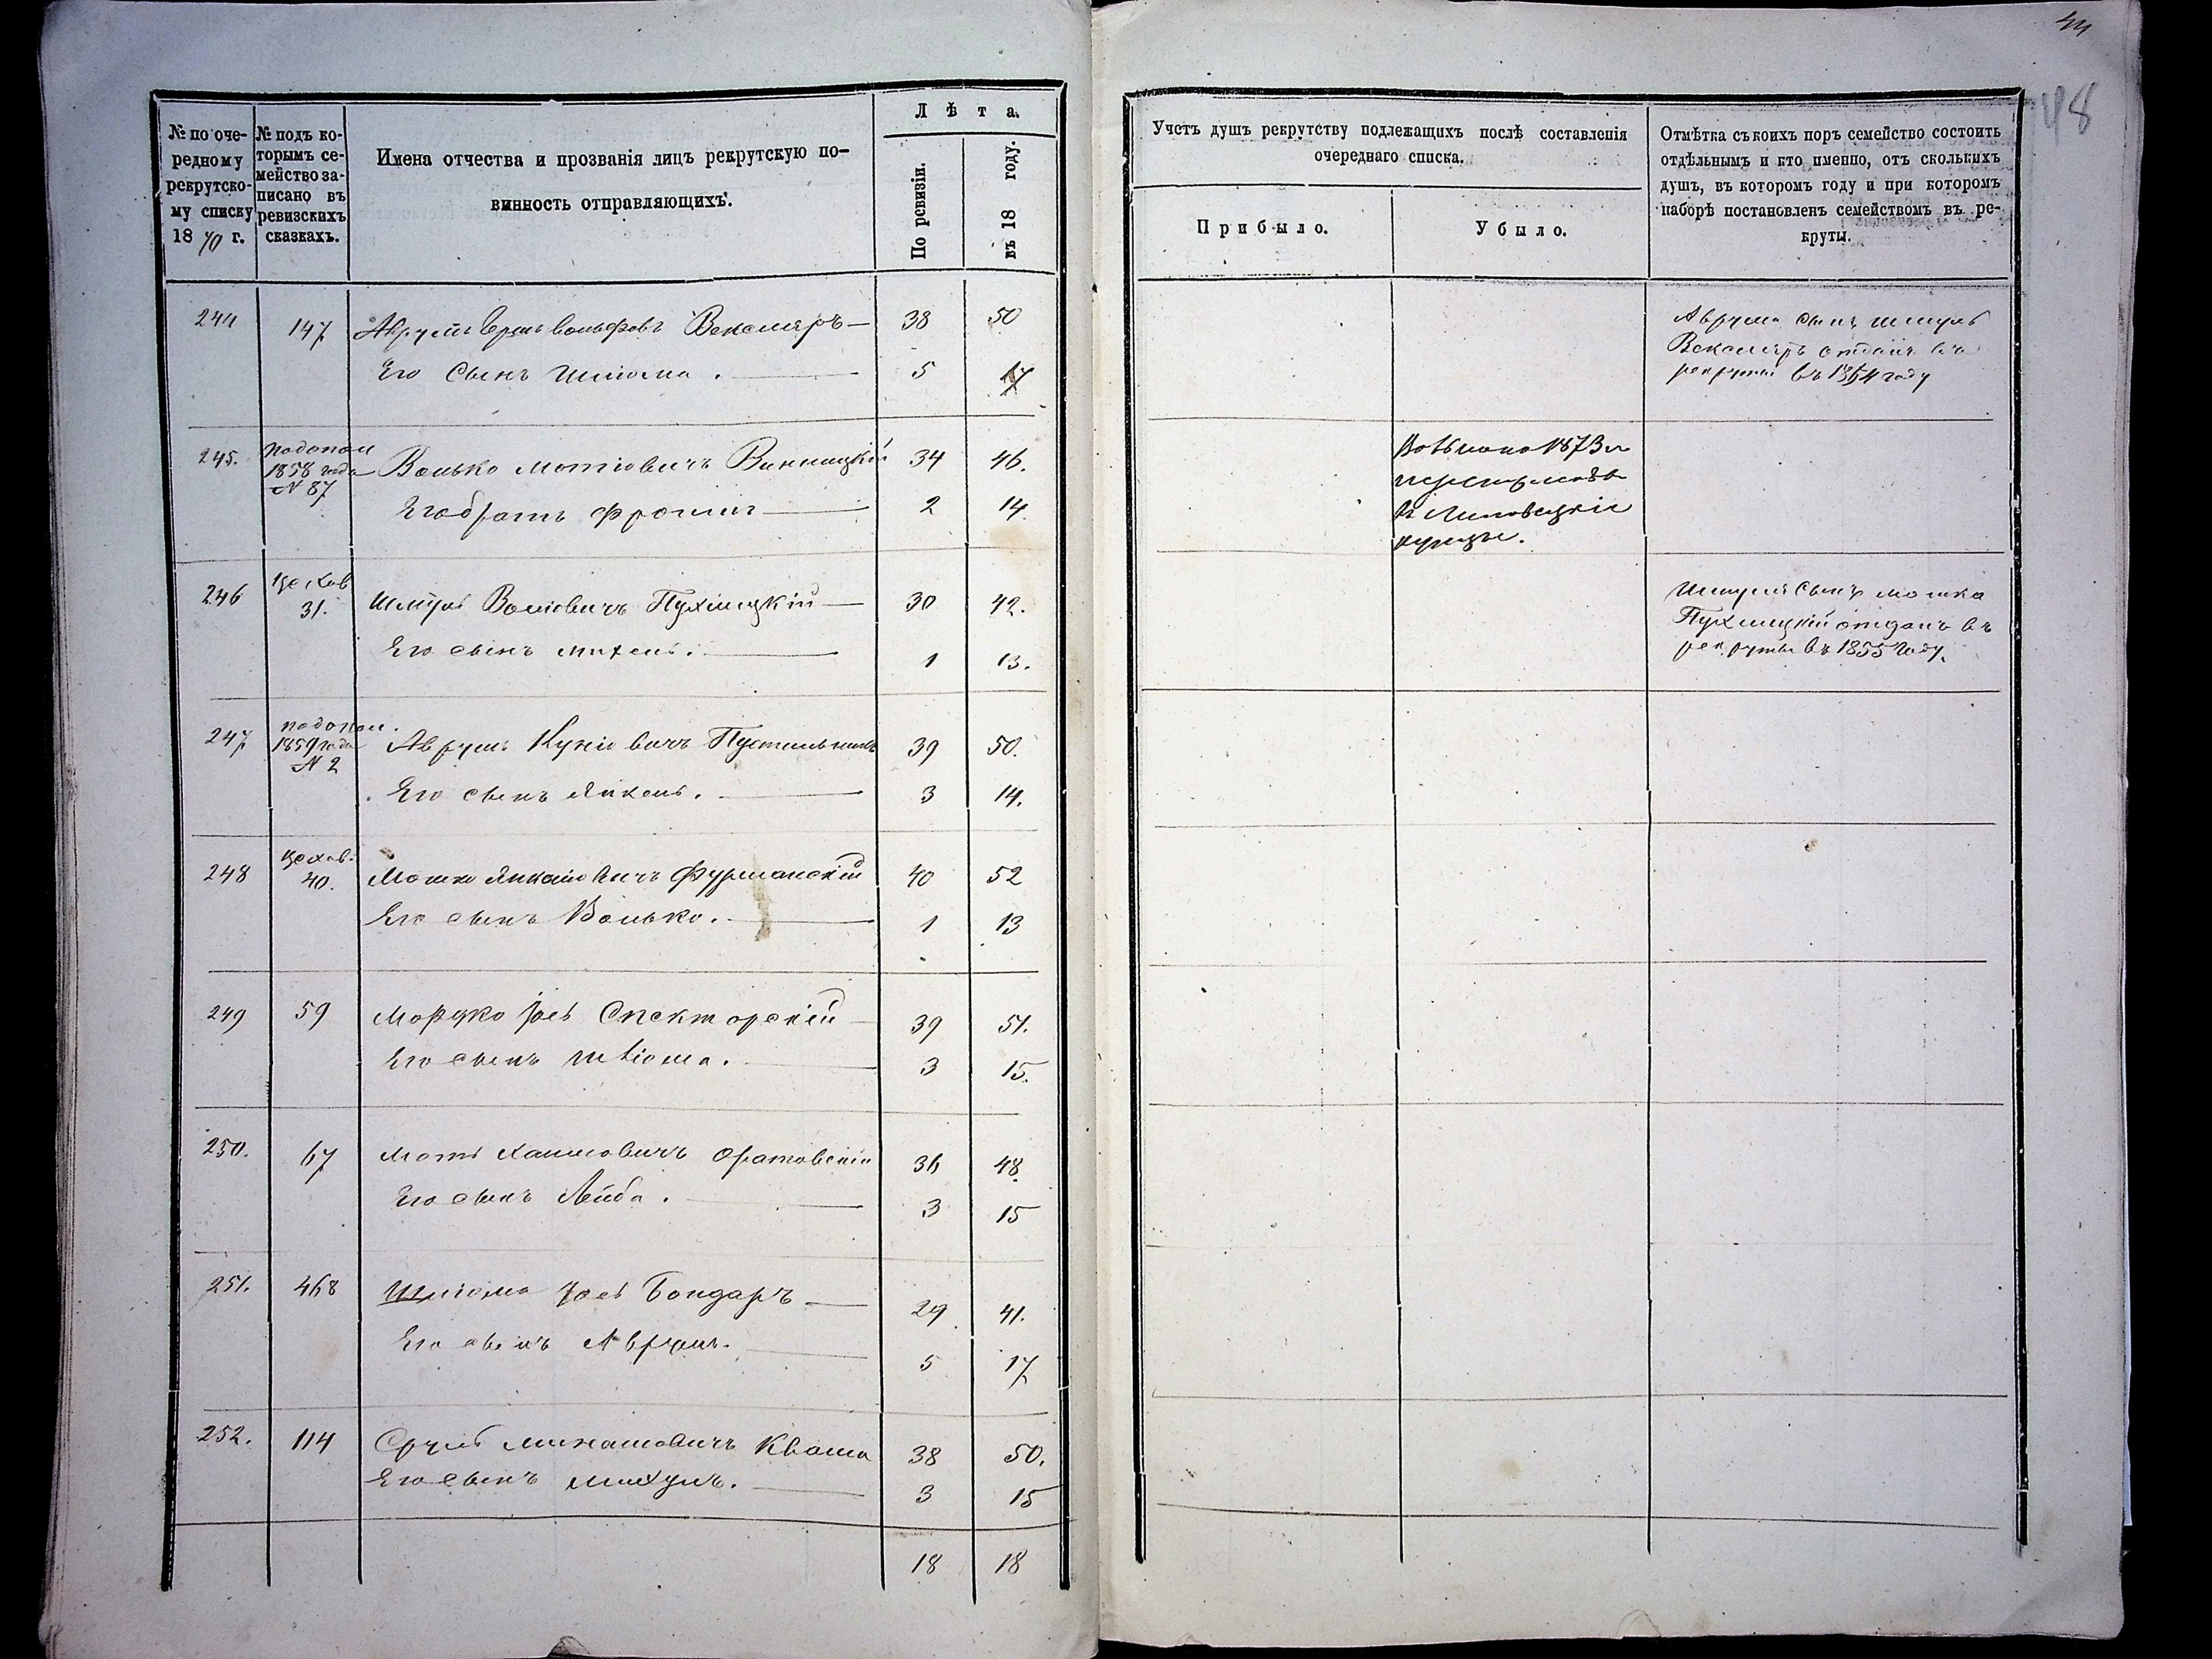 44
48
№ по оче-
редному
рекрутско-
му списку
1870 г.
№ подъ ко-
торымъ се-
мейство за-
писано въ
ревизскихъ
сказкахъ.
Имена отчества и прозванія лицъ рекрутскую по-
винность отправляющихъ.
Лѣта.
По ревизіи.
въ 18 году.
Учетъ душъ рекрутству подлежащихъ послѣ составленія
очереднаго списка.
Прибыло.
Убыло.
Отмѣтка съ коихъ поръ семейство состоитъ
отдѣльнымъ и кто именно, отъ сколькихъ
душъ, въ которомъ году и при которомъ
наборѣ постановленъ семействомъ въ ре-
круты.
244 147 Аврумъ Вольфовъ Векслеръ 38 50
Его сынъ Шліома. 5 17
Аврума сынъ Шмуль
Векслеръ отданъ въ
рекруты въ 1854 году
245. подопол
1858 года
№ 87
Волько Мотіовичъ Винницкій 34 46.
Его братъ Фроимъ 2 14
1873
въ Липовецкіе
купцы.
246 цехов
31.
Шмуль Воліовичъ Пухлицкій 30 42.
Его сынъ Михель. 1 13.
Шмуля сынъ Мошка
Пухлицкій отданъ въ
рекруты въ 1855 году.
247 подопол.
1859 года
№ 2
Аврумъ Куніовичъ Пустильникъ 39 50.
Его сынъ Янкель. 3 14.
248 цехов.
40.
Мошко Янкеліовичъ Фурманскій 40 52
Его сынъ Волько. 1 13
249 59 Мордко Іось Спекторскій 39 51.
Его сынъ Шліома. 3 15.
250. 67 Моть Хаимовичъ Оратовскій 36 48.
Его сынъ Лейба. 3 15
251. 468 Шліома Іось Бондаръ 29 41.
Его сынъ Аврумъ. 5 17
252. 114 Сруль Кваша 38 50.
Его сынъ 3 15
18 18